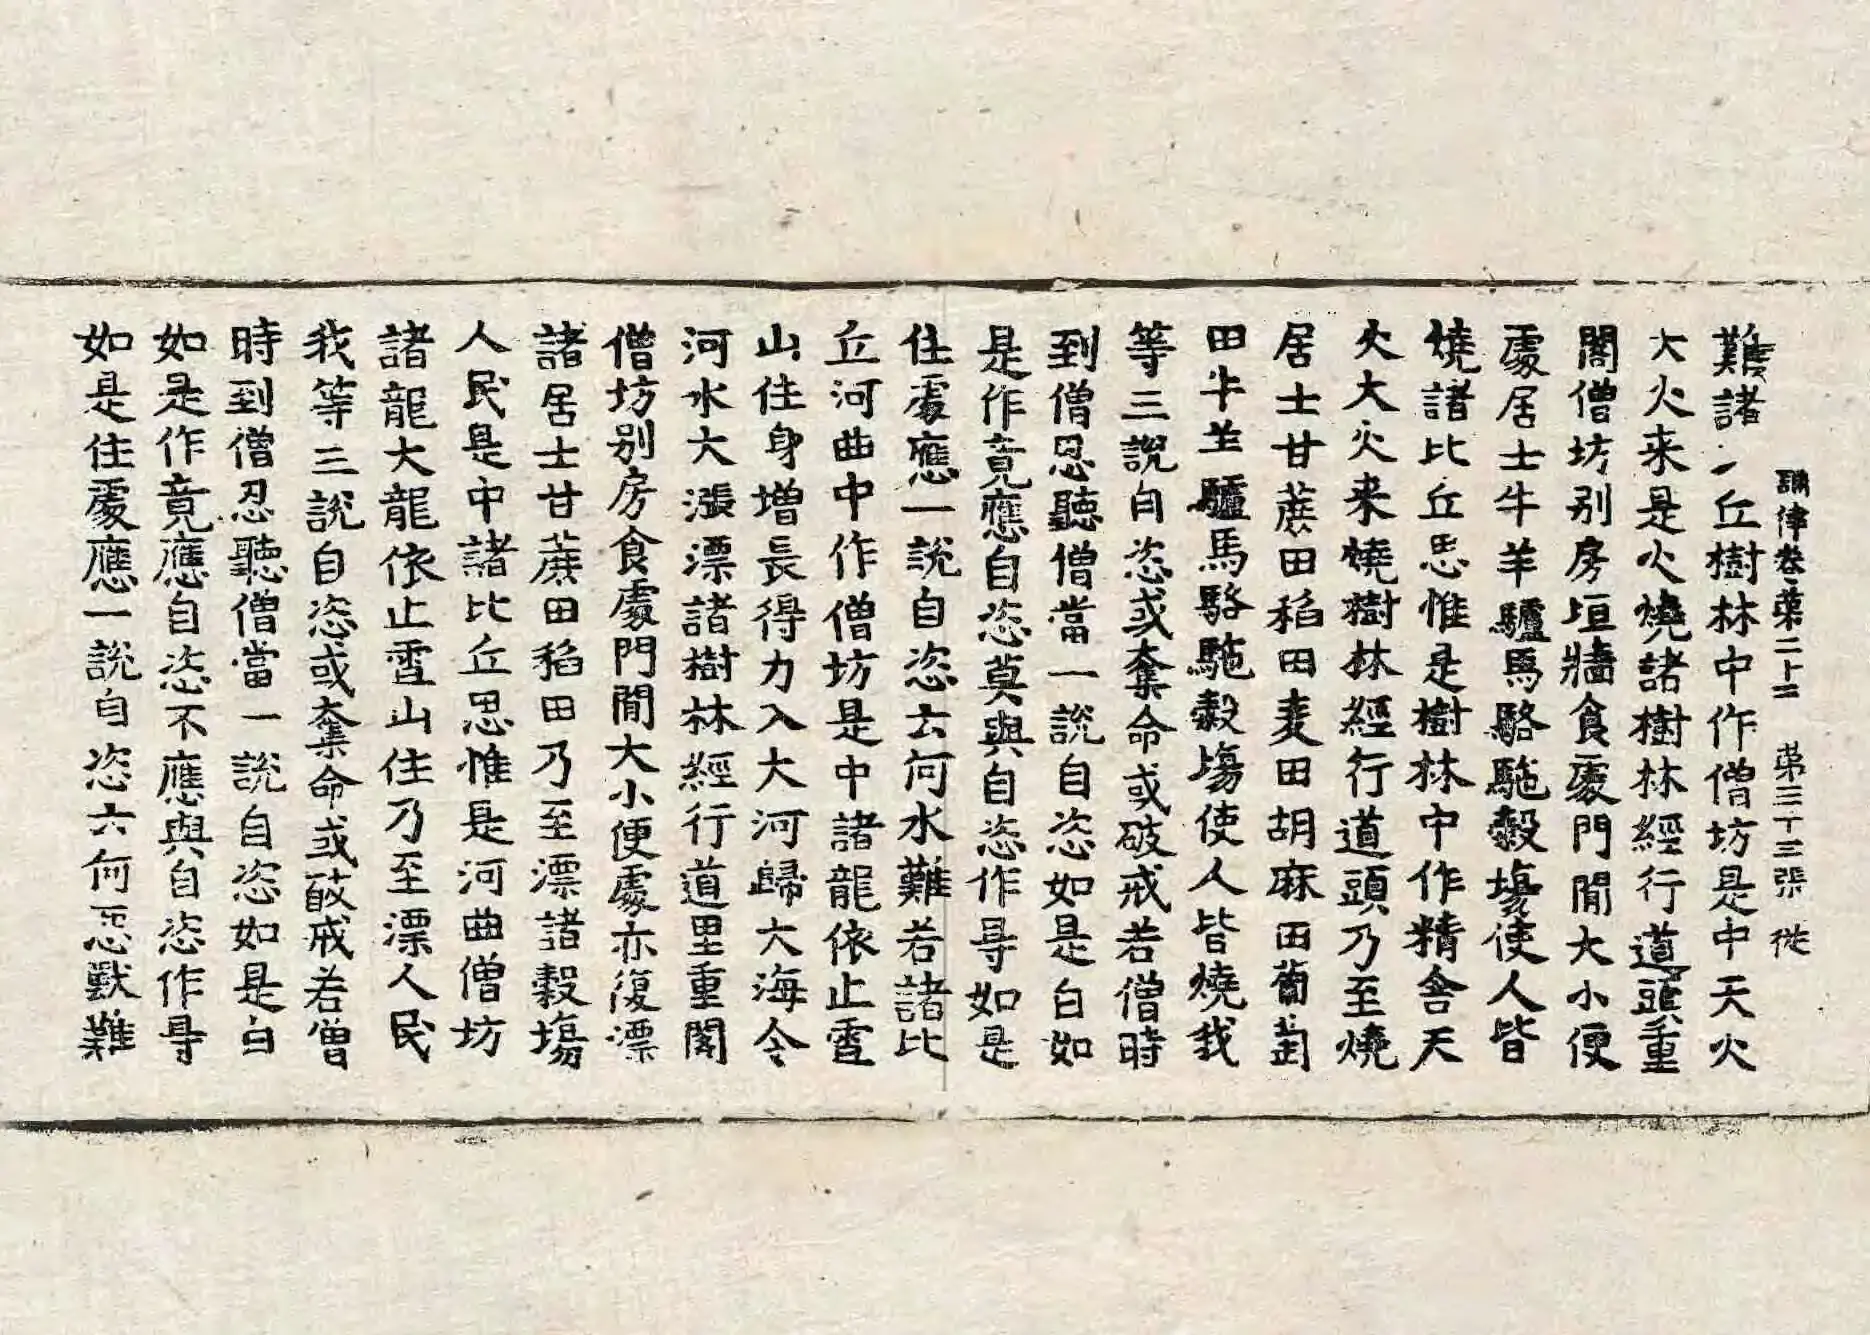 誦律卷第二十三 第三十三張 從
難諸丘樹林中作僧坊是中天火
大火来是火燒諸樹林經行道頭重
閣僧坊别房垣牆食處門閒大小便
處居士牛羊驢馬駱駞穀場使人皆
燒諸比丘思惟是樹林中作精舍天
火大火来燒樹林經行道頭乃至燒
居士甘蔗田稻田麦田胡麻田蔔萄
田牛羊驢馬駱駞穀場使人皆燒我
等三說自恣或奪命或破戒若僧時
到僧忍聽僧當一說自恣如是白如
是作竟應自恣莫與自恣作㝵如是
住處應一說自恣云何水難若諸比
丘河曲中作僧坊是中諸龍依止雪
山住身增長得力入大河歸大海令
河水大漲漂諸樹林經行道里重閣
僧坊别房食處門閒大小便處亦復漂
諸居士甘蔗田稻田乃至漂諸穀場
人民是中諸比丘思惟是河曲僧坊
諸龍大龍依止雪山住乃至漂人民
我等三說自恣或奪命或破戒若僧
時到僧忍聽僧當一說自恣如是白
如是作竟應自恣不應與自恣作㝵
如是住處應一說自恣云何惡獸難